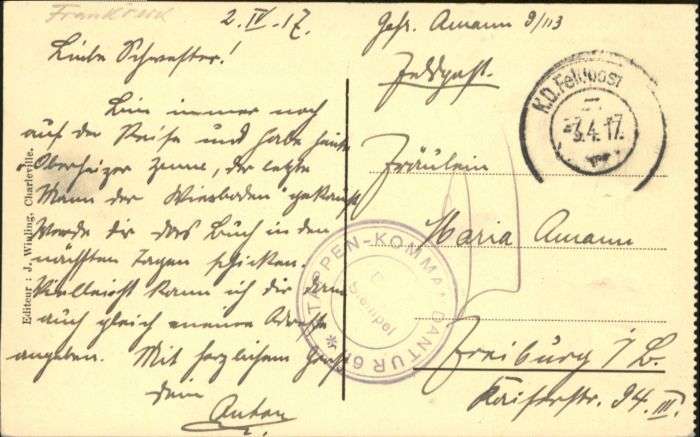 Frankreich
2. IV. 17.
Liebe Schwester!
Bin immer noch
auf der Reise und habe heute
"Oberheizer Zenne, der letzte
Mann der Wiesbaden" gekauft
Werde dir das Buch in den
nächsten Tagen schicken.
Vielleicht kann ich dir dann
auch gleich meine Adresse
angeben. Mit herzlichem Gruß
dein
Anton
Gefr. Amann 9/113
Feldpost.
Fräulein
Maria Amann
Freiburg i/B.
Kaiserstr. 94. III.
K.D. Feldpost
3.4.17.
ETAPPEN-KOMMANDANTUR
Stempel
Editeur : J. Winling, Charleville.